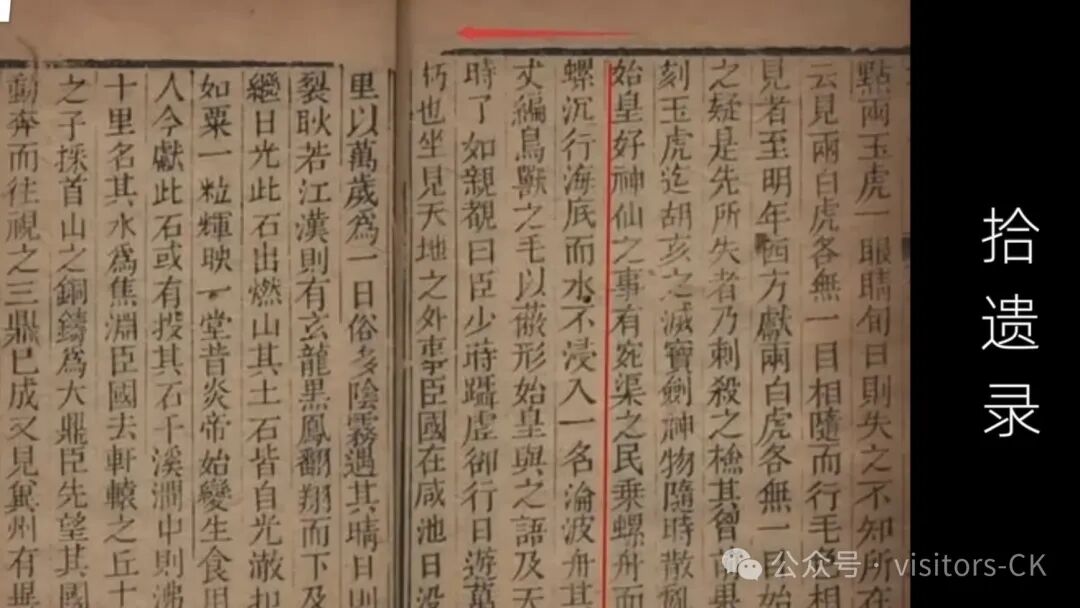 點兩玉虎一眼睛旬日則失之不知所在
云見兩白虎各無一目相隨而行毛色相
見者至明年西方獻兩白虎各無一目始
之疑是先所失者乃刺殺之檢其曾前
刻玉虎迄胡亥之滅寶劍神物隨時散亂
始皇好神仙之事有宛渠之民乘螺舟而
螺沉行海底而水不浸入一名淪波舟其
丈編鳥獸之毛以蔽形始皇與之語及天
時了如親覩曰臣少時躡虛御行日遊萬
朽也坐見天地之外事臣國在咸池日沒
里以萬歲爲一日俗多陰霧遇其晴日則
裂耿若江漢則有玄龍黑鳳翻翔而下及
繼日光此石出燃山其土石皆自光澈扣
如粟一粒輝映一堂昔炎帝始變生食用
人今獻此石或有投其石于溪澗中則沸
十里名其水爲焦淵臣國去軒轅之丘十
之子採首山之銅鑄爲大鼎臣先望其國
動奔而往視之三鼎已成又見冀州有異
拾遗录
公众号 · visitors-CK